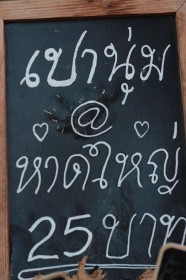 เปานุ่ม
@
หาดใหญ่
25 บาท